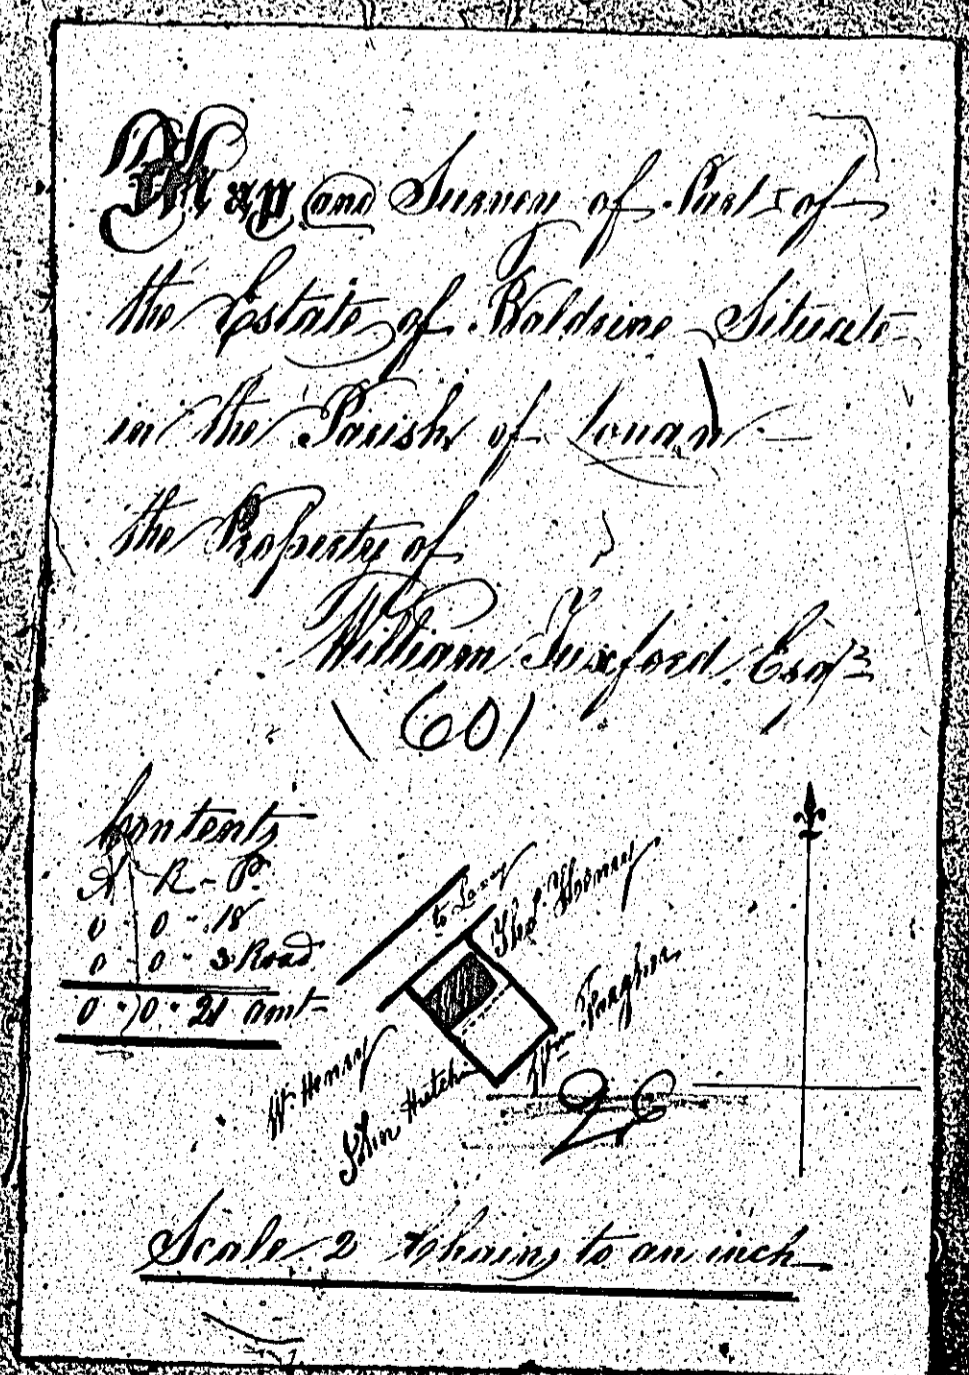 Map and Survey of Part of
the Estate of Baldrine Situate
in the Parish of Lonan
the Property of
William Tuxford Esqr
(60)
Contents
A - R - P.
0 - 0 - 18
0 - 0 - 3 Road
0 - 0 - 21 amt
to Laxey
Thos
Wm Faragher
W. Henry
John
26
Scale 2 Chains to an inch